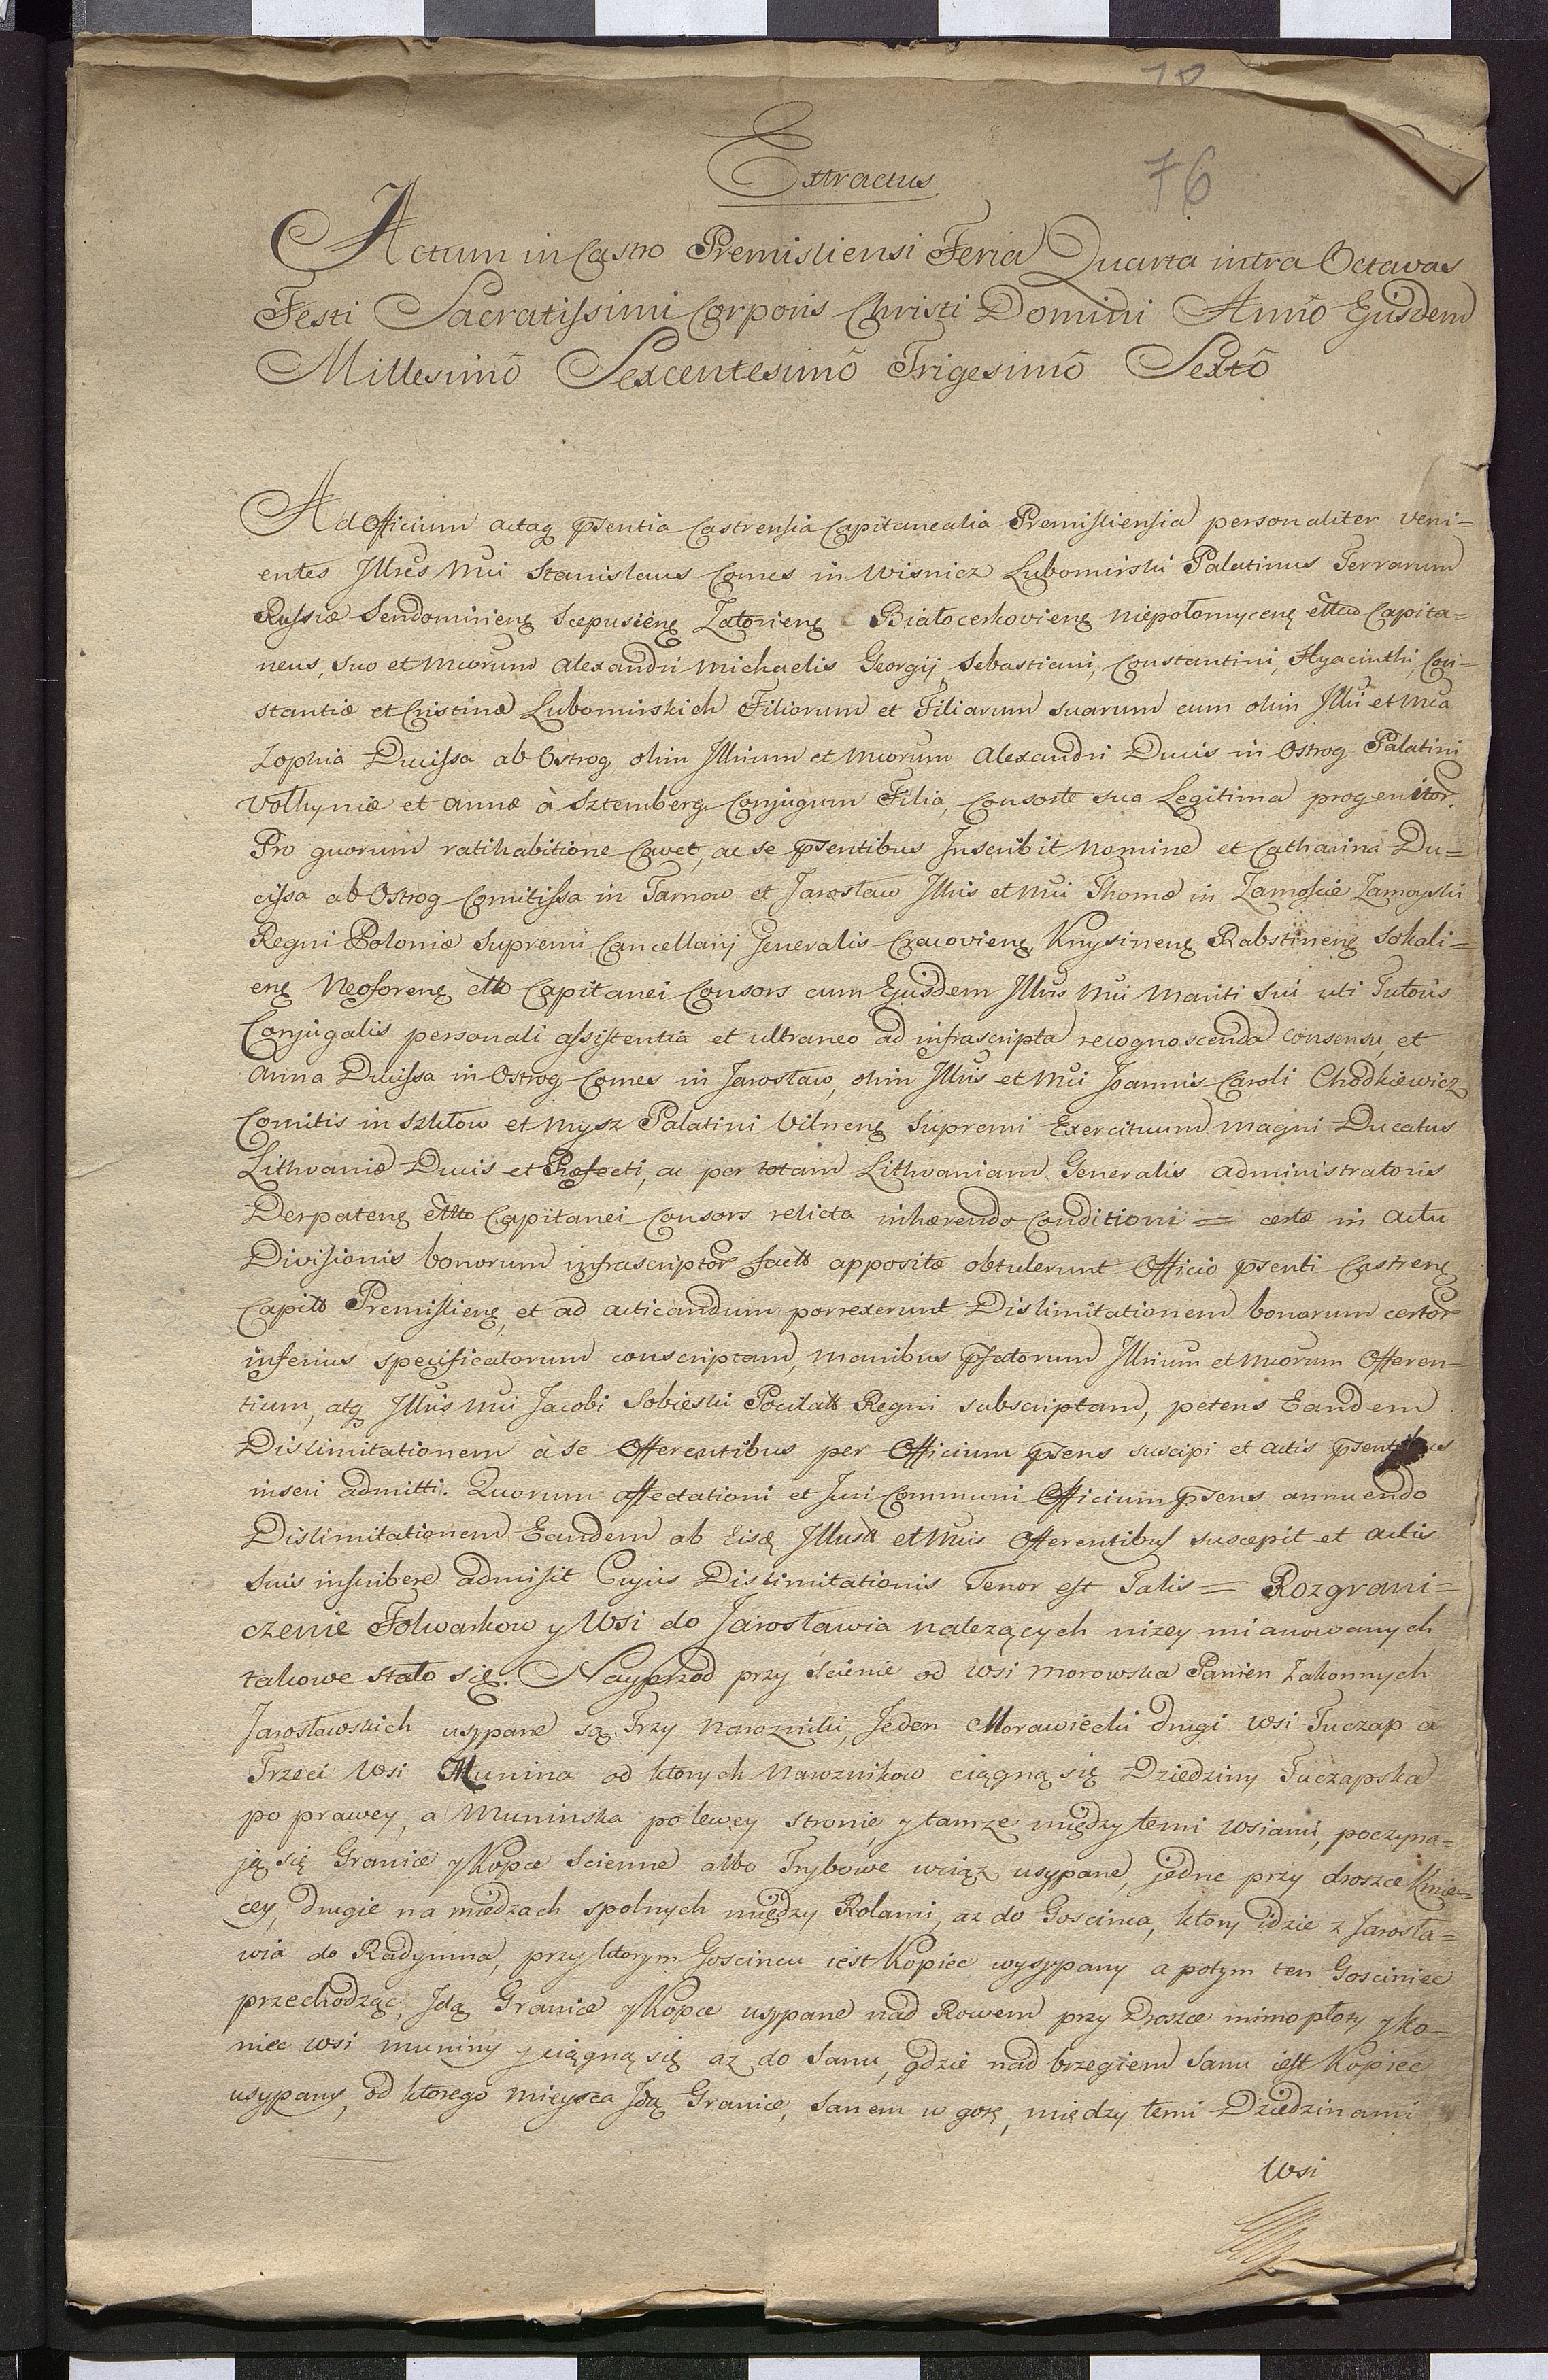 76
Extractus
Actum in Castro Premisliensi Feria Quarta intra Octavas
Festi Sacratissimi Corporis Christi Domini Anno Ejusdem
Millesimō Sexcentesimō Trigesimō Sextō
Ad Officium actaq pſentia Castrensia Capitanealia Premisliensia personaliter veni=
entes Illres Mui Stanislaus Comes in Wisnicz Lubomirski Palatinus Terrarum
Russiæ Sendomirieng Scepusieng Zatorieng Białocerkovieng Niepołomyceng Capita=
neus, suo et Mcorum Alexandri Michaelis Georgij, Sebastiani, Constantini, Hyacinthi, Con=
stantiæ et Cristinæ Lubomirskich Filiorum et Filiarum suarum cum olim Illri et Mca
Zophia Ducissa ab Ostrog olim Illrium et Mcorum Alexandri Ducis in Ostrog Palatini
Volhyniæ et Annæ à Sztemberg Conjugum Filia, Consorte sua Legitima progenitor.
Pro quorum ratihabitione Cavet, ac se pſentibus Inscribit nomine et Catharina Du=
cissa ab Ostrog Comitissa in Tarnow et Jarosław Illris et Mci Thomæ in Zamoście Zamoyski
Regni Poloniæ Supremi Cancellarij Generalis Cracovieng Knysineng Rabstineng Sokali=
eng Neoforeng Capitanei Consors cum Ejusdem Illris Mci mariti sui uti Tutoris
Conjugalis personali assistentia et ultraneo ad infrascripta recognoscenda consensu, et
Anna Ducissa in Ostrog Comes in Jarosław, olim Illris et Mci Joannis Caroli Chodkiewicz
Comitis in Szkłow et Mysz Palatini Vilneng Supremi Exercituum Magni Ducatus
Lithvaniæ Ducis et Præfecti, ac per totam Lithvaniam Generalis administratoris
Derpateng Capitanei Consors relicta inhærendo Conditioni = certæ in actu
Divisionis bonorum infrascriptor appositæ obtulerunt Officio pſenti Castreng
Premislieng, et ad acticandum porrexerunt Dislimitationem bonorum certor
inferius specificatorum conscriptam, manibus pſatorum Illrium et Mcorum Offeren=
tium, atq Illris Mci Jacobi Sobieski Regni subscriptam, petens Eandem
Dislimitationem à se Offerentibus per Officium pſens suscipi et actis pſentibus
inseri admitti. Quorum affectationi et Juri Communi Officium pſens annuendo
Dislimitationem Eandem ab Eisd et Mcis Offerentibus suscepit et actis
suis inscribere admisit Cujus Dislimitationis Tenor est Talis = Rozgrani=
czenie Folwarkow y Wsi do Jarosławia nalezących nizey mianowanych
takowe stało się. Nayprzod przy ścienie od wsi Morowska Panien Zakonnych
Jarosławskich usypane są Trzy Narozniki, Jeden Morawiecki drugi wsi Tuczap a
Trzeci Wsi Munina od ktorych Naroznikow ciągną się Dziedziny Tuczapska
po prawey, a Muninska po lewey stronie, y tamze między temi wsiami, poczyna=
ją się Granice y Kopce Scienne albo Trybowe wciąz usypane, jedne przy droszce Kmie=
cey, drugie na miedzach spolnych między Rolami, az do Goscinca, ktory idzie z Jarosła=
wia do Radymna, przy ktorym Goscincu iest Kopiec wysypany a potym ten Gosciniec
przechodząc, Idą Granice y Kopce usypane nad Rowem przy Droszce mimo płoty y ko=
niec wsi Muniny y ciągną się az do Sanu, gdzie nad brzegiem Sanu iest Kopiec
usypany, od ktorego mieysca Idą Granice, Sanem w gorę, między temi Dziedzinami
Wsi